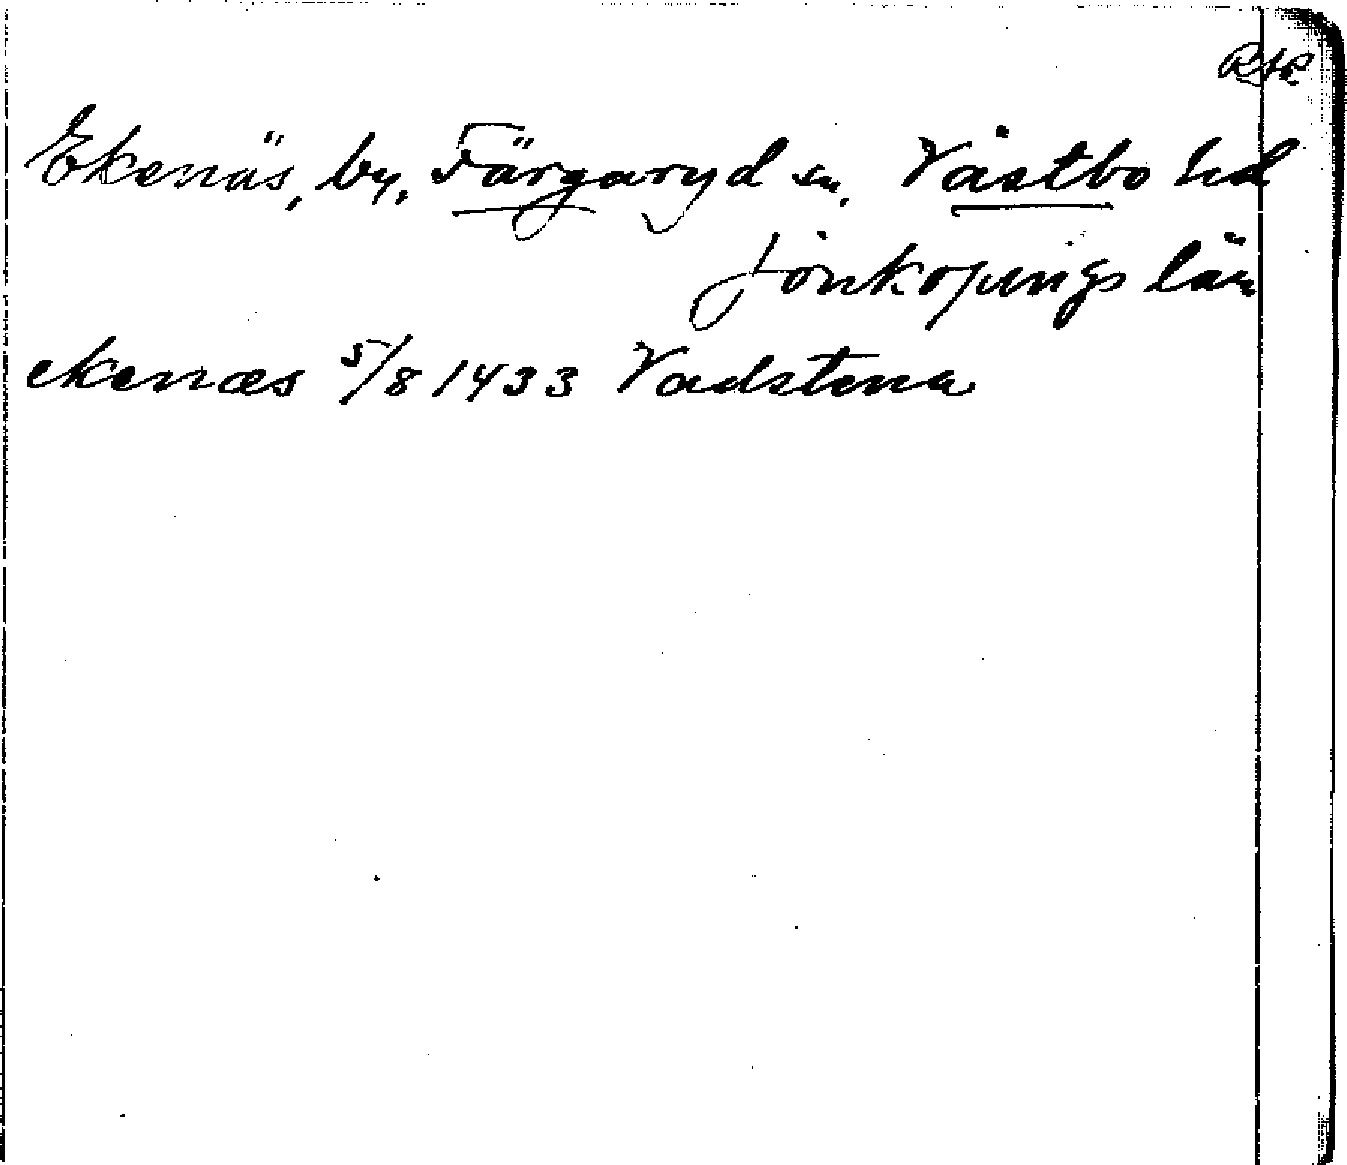 Ekenäs, by, Färgaryd sn. Västbo hd
Jönköpings län
ekenæs 5/8 1433 Vadstena